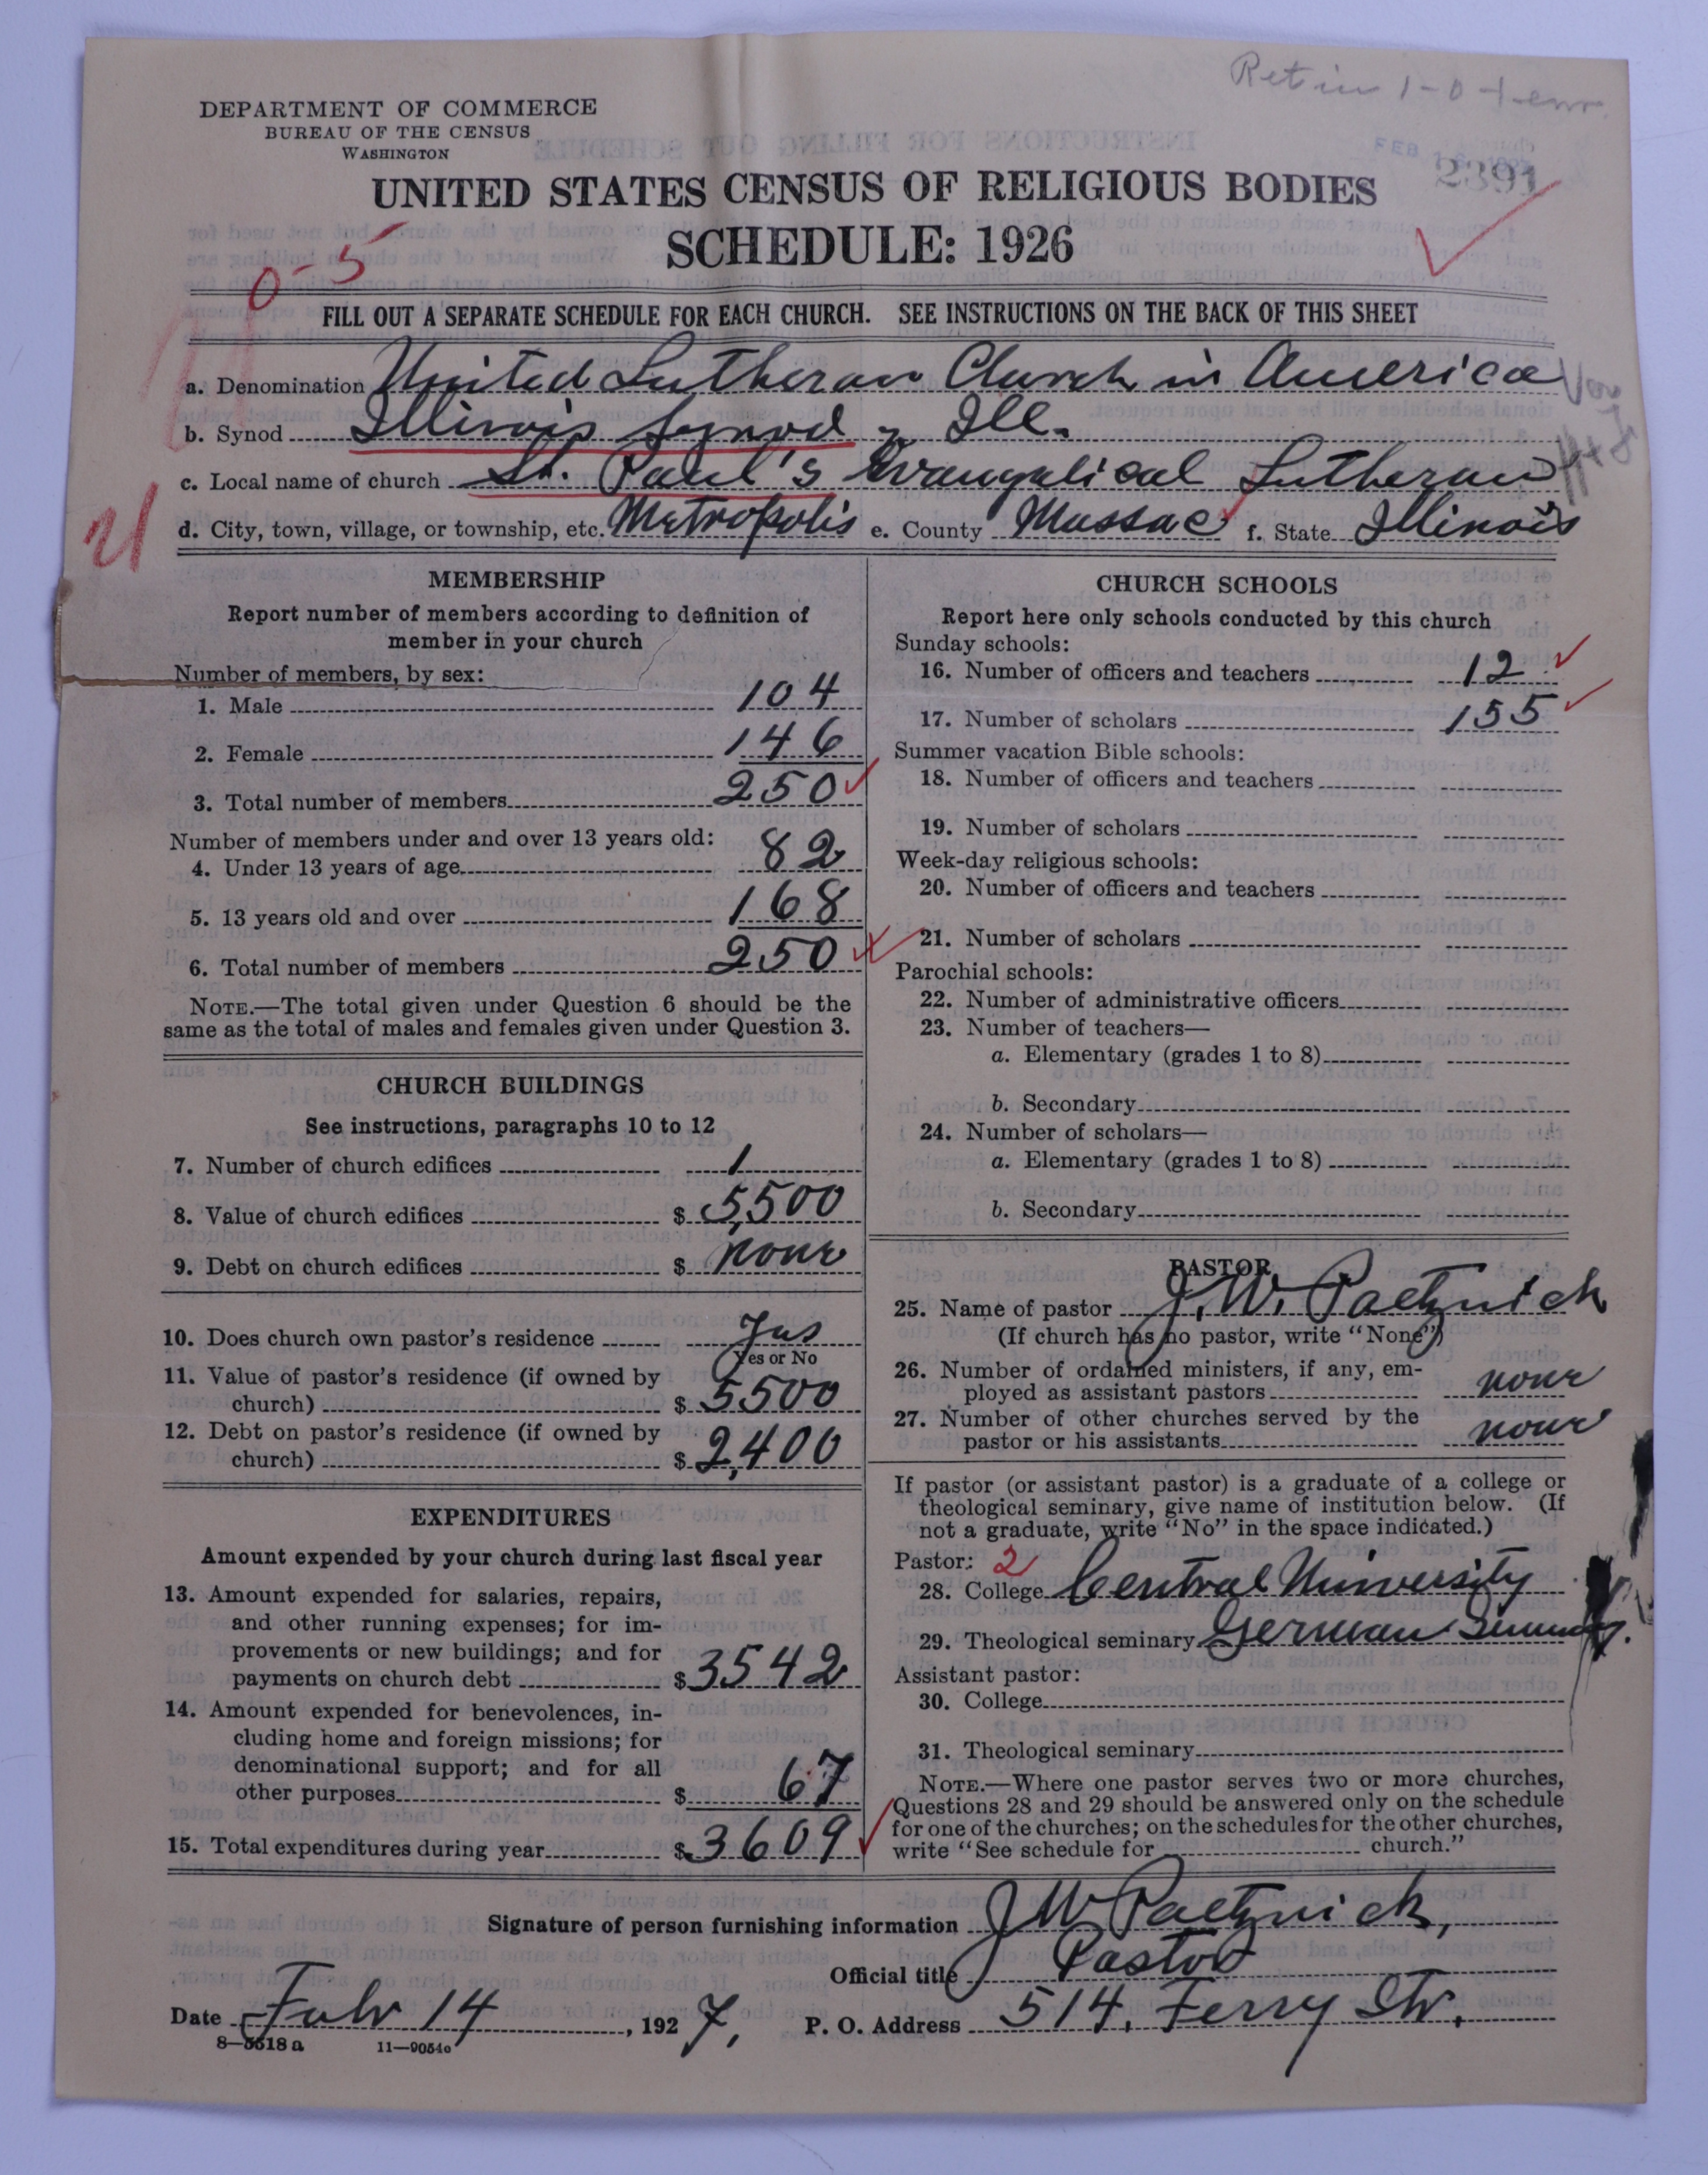 Ret in 1-0-1-enr.
DEPARTMENT OF COMMERCE
BUREAU OF THE CENSUS
WASHINGTON
FEB
2391
UNITED STATES CENSUS OF RELIGIOUS BODIES
SCHEDULE: 1926
0-5
FILL OUT A SEPARATE SCHEDULE FOR EACH CHURCH. SEE INSTRUCTIONS ON THE BACK OF THIS SHEET
a. Denomination United Lutheran Church in America
b. Synod Illinois Synod, Ill.
c. Local name of church St. Paul's Evangelical Lutheran
d. City, town, village, or township, etc. Metropolis e. County Massac f. State Illinois
21
MEMBERSHIP
Report number of members according to definition of
member in your church
Number of members, by sex:
1. Male 104
2. Female 146
3. Total number of members 250
Number of members under and over 13 years old:
4. Under 13 years of age 82
5. 13 years old and over 168
6. Total number of members 250
NOTE.—The total given under Question 6 should be the
same as the total of males and females given under Question 3.
CHURCH BUILDINGS
See instructions, paragraphs 10 to 12
7. Number of church edifices 1
8. Value of church edifices $ 5,500
9. Debt on church edifices $ none
10. Does church own pastor's residence Yes
Yes or No
11. Value of pastor's residence (if owned by
church) $ 5500
12. Debt on pastor's residence (if owned by
church) $ 2,400
EXPENDITURES
Amount expended by your church during last fiscal year
13. Amount expended for salaries, repairs,
and other running expenses; for im-
provements or new buildings; and for
payments on church debt $ 3542
14. Amount expended for benevolences, in-
cluding home and foreign missions; for
denominational support; and for all
other purposes $ 67
15. Total expenditures during year $ 3609
CHURCH SCHOOLS
Report here only schools conducted by this church
Sunday schools:
16. Number of officers and teachers 12
17. Number of scholars 155
Summer vacation Bible schools:
18. Number of officers and teachers
19. Number of scholars
Week-day religious schools:
20. Number of officers and teachers
21. Number of scholars
Parochial schools:
22. Number of administrative officers
23. Number of teachers—
a. Elementary (grades 1 to 8)
b. Secondary
24. Number of scholars—
a. Elementary (grades 1 to 8)
b. Secondary
PASTOR
25. Name of pastor J. W. Paetznick
(If church has no pastor, write "None")
26. Number of ordained ministers, if any, em-
ployed as assistant pastors none
27. Number of other churches served by the
pastor or his assistants none
If pastor (or assistant pastor) is a graduate of a college or
theological seminary, give name of institution below. (If
not a graduate, write "No" in the space indicated.)
Pastor: 2
28. College Central University
29. Theological seminary German
Assistant pastor:
30. College
31. Theological seminary
NOTE.—Where one pastor serves two or more churches,
Questions 28 and 29 should be answered only on the schedule
for one of the churches; on the schedules for the other churches,
write "See schedule for church."
Signature of person furnishing information J W Paetznick,
Official title Pastor
Date Feb 14, 1927, P. O. Address 514. Ferry Str.
8—5518a 11—9054o